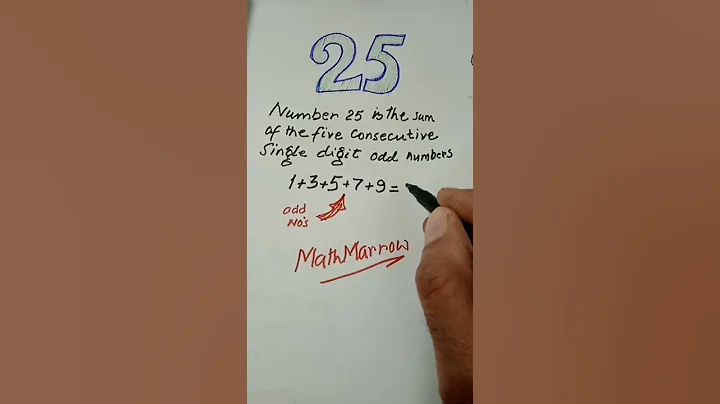 25
Number 25 is the sum
of the five Consecutive
Single digit odd numbers
1+3+5+7+9=
odd
No's
MathMarrow